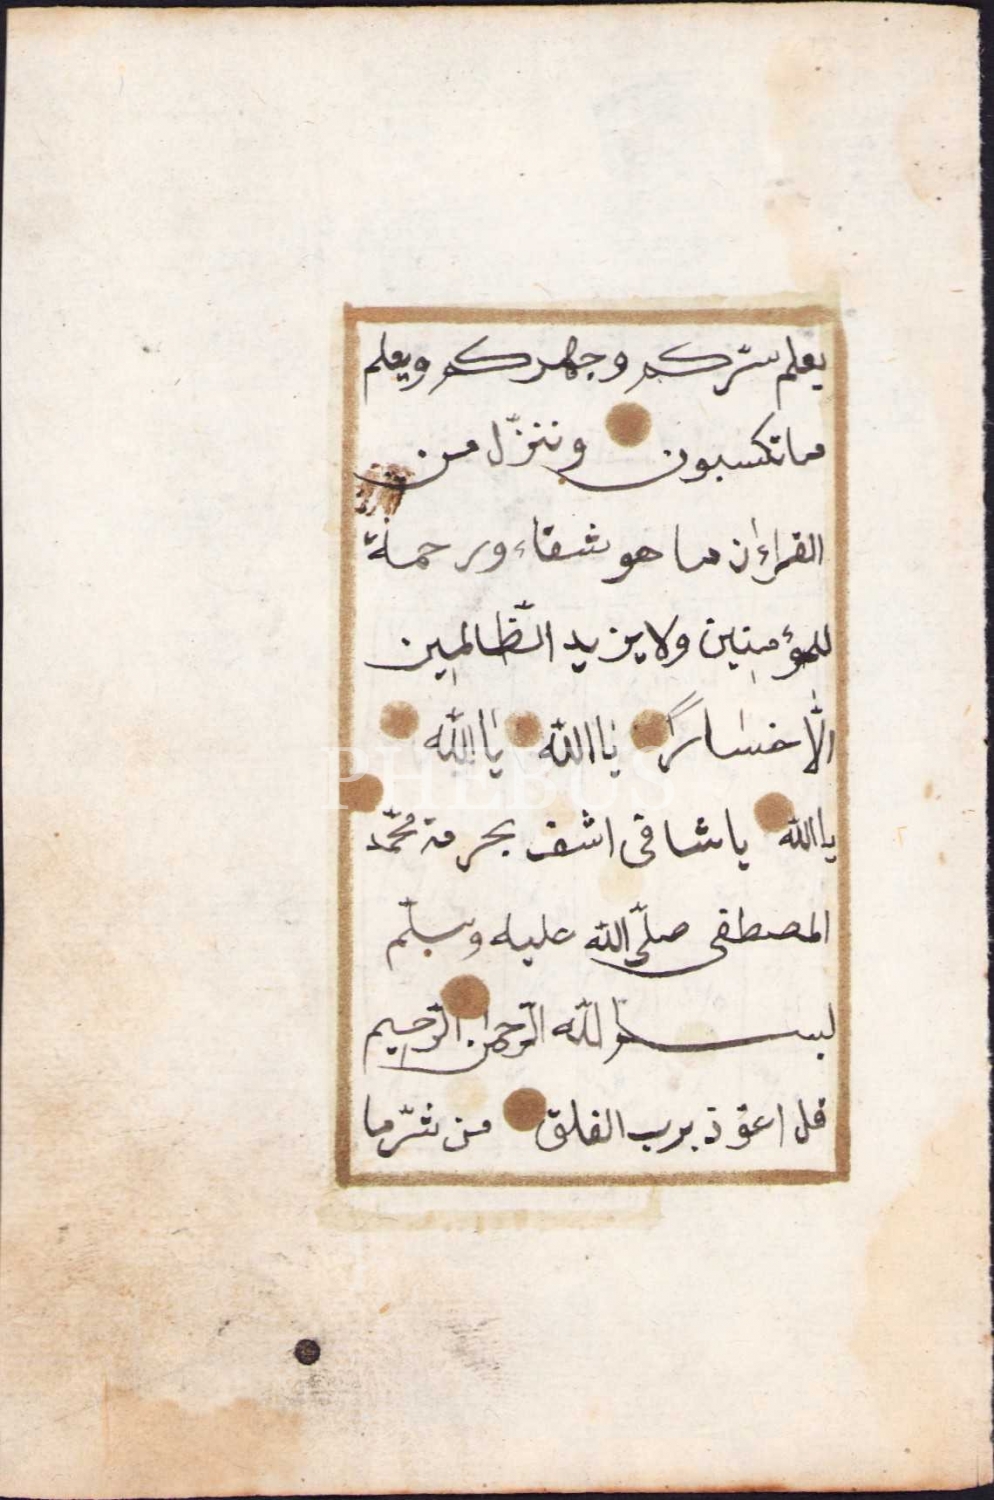 يعلم سرّكم وجهركم ويعلم
ما تكسبون وننزّل من
القرءان ما هو شفاء ورحمة
للمؤمنين ولا يزيد الظّالمين
الّا خسارًا يا الله يا الله
يا الله يا شافى اشف بحرمة محمّد
المصطفى صلّى الله عليه وسلّم
بسم الله الرّحمن الرّحيم
قل اعوذ برب الفلق من شرّ ما
PHEBUS